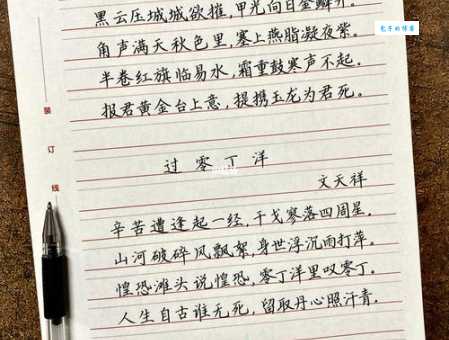 黑云压城城欲摧，甲光向日金鳞开。
角声满天秋色里，塞上燕脂凝夜紫。
半卷红旗临易水，霜重鼓寒声不起。
报君黄金台上意，提携玉龙为君死。
过零丁洋
文天祥
辛苦遭逢起一经，干戈寥落四周星。
山河破碎风飘絮，身世浮沉雨打萍。
惶恐滩头说惶恐，零丁洋里叹零丁。
人生自古谁无死，留取丹心照汗青。
装订线